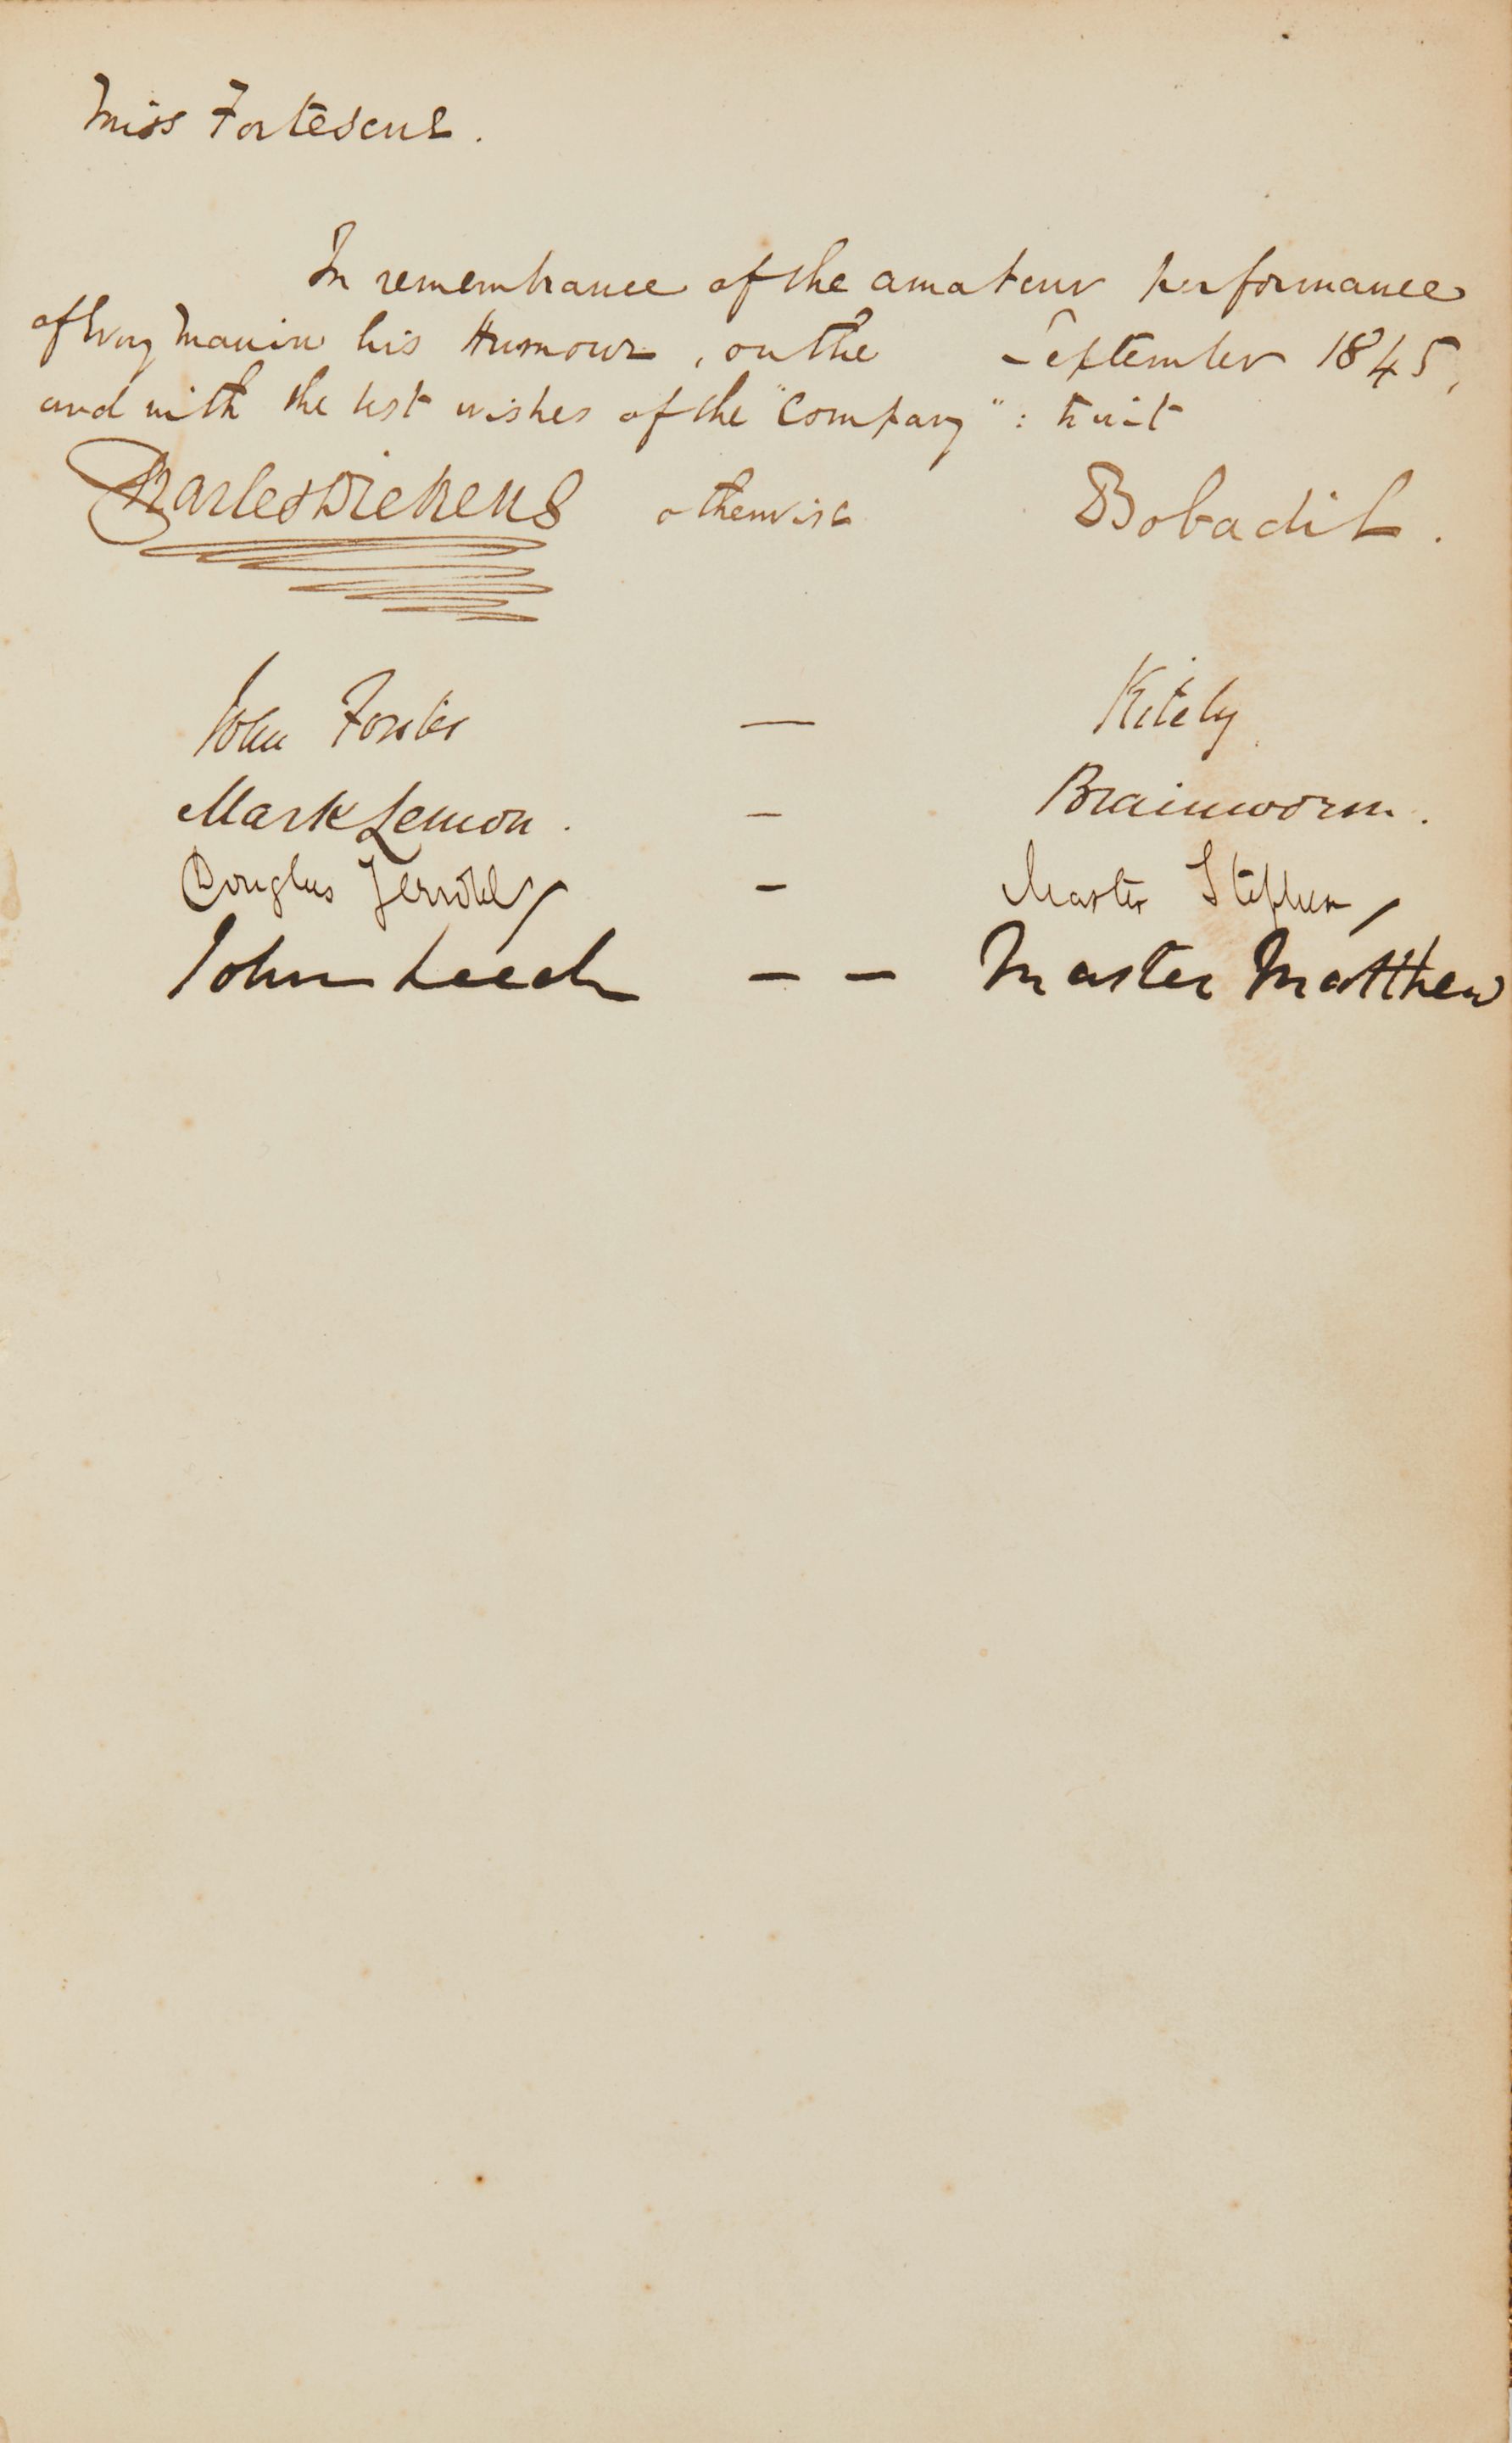 Miss Fortescue.
In remembrance of the amateur performance
of Every Man in his Humour, on the September 1845,
and with the best wishes of the "Company": to wit
Charles Dickens otherwise Bobadil.
John Forster — Kitely
Mark Lemon. — Brainworm.
Douglas Jerrold — Master Stephen
John Leech — — Master Matthew